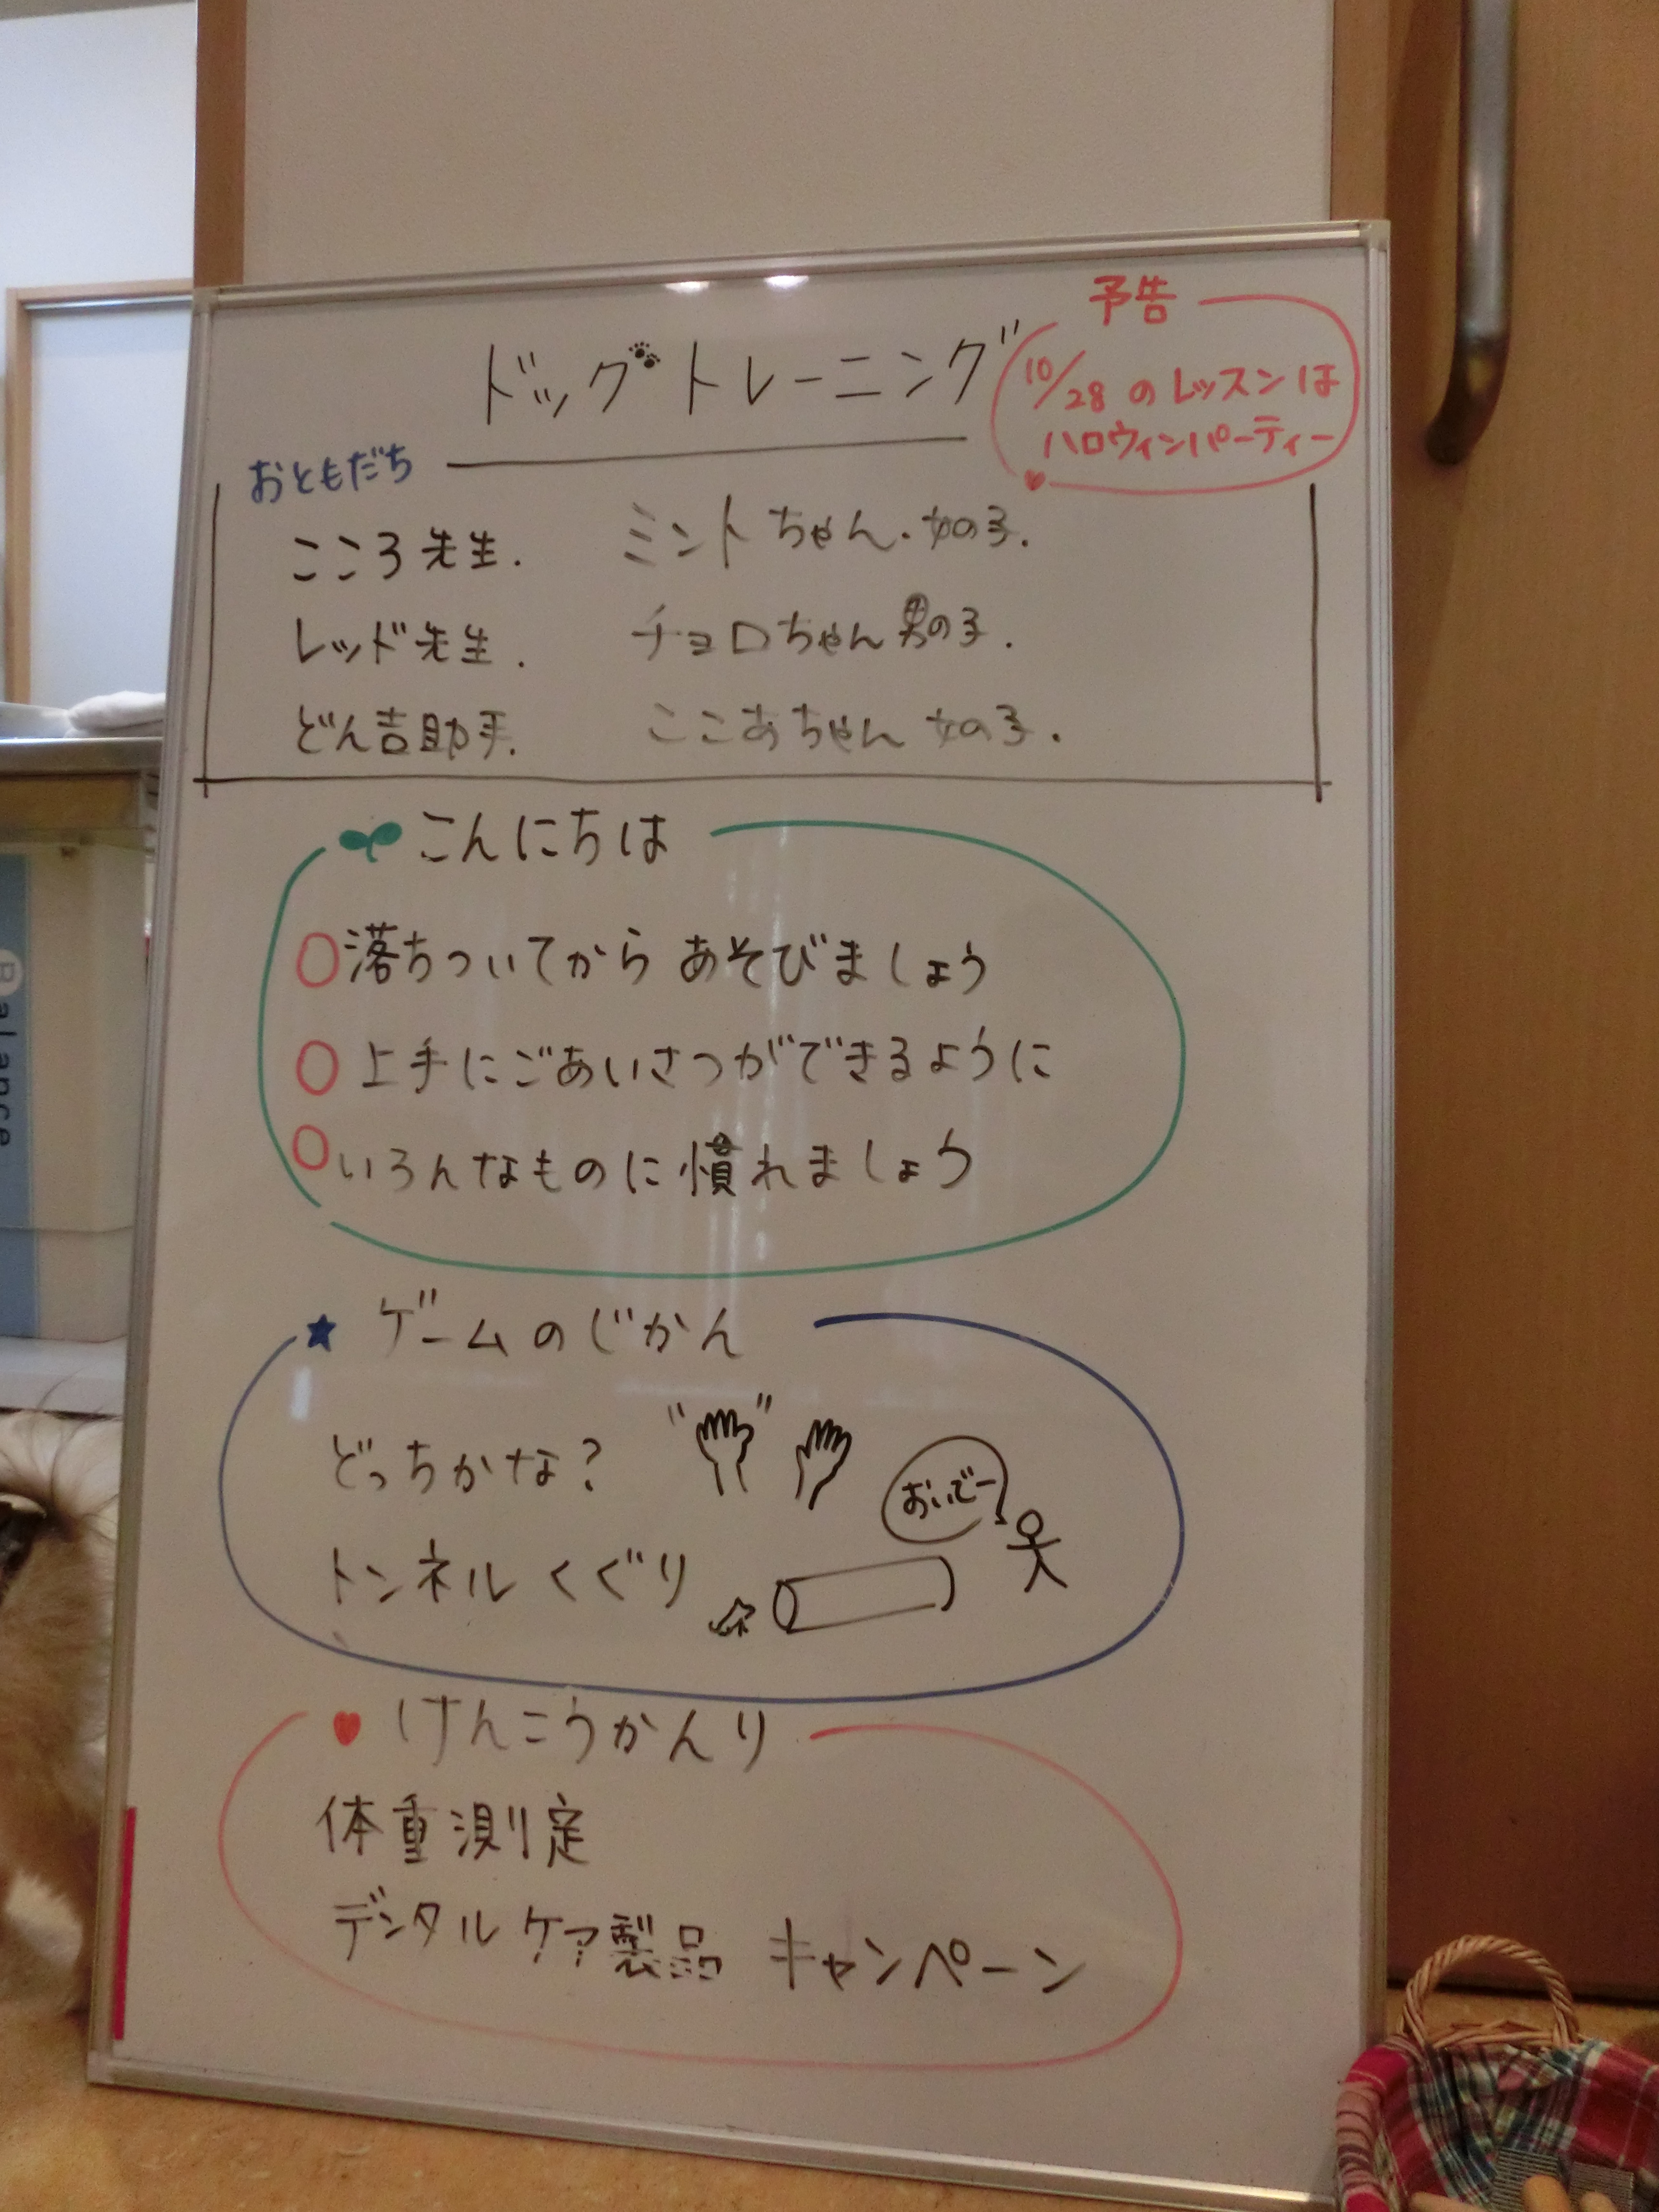 ドッグトレーニング
予告
10/28のレッスンは
ハロウィンパーティー
おともだち
こころ先生. ミントちゃん.女の子.
レッド先生. チョロちゃん男の子.
どん吉助手. ここあちゃん女の子.
こんにちは
○落ちついてからあそびましょう
○上手にごあいさつができるように
○いろんなものに慣れましょう
ゲームのじかん
どっちかな?
おいでー
トンネルくぐり
けんこうかんり
体重測定
デンタルケア製品 キャンペーン
Balance